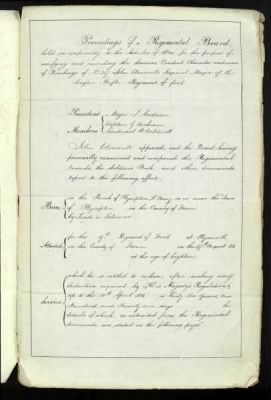 Proceedings of a Regimental Board,
held in conformity to the Articles of War, for the purpose of
verifying and recording the Services, Conduct, Character and cause
of Discharge of No. John Clements Serjeant Major of the
Regiment of foot.
President Major J. Anderson
Members Captain
Lieutenant
John Clements appeared, and the Board having
personally examined and compared the Regimental
records, the Soldiers Book, and other documents
report to the following effect.
Born, in the Parish of Plympton St Maury in or near the Town
of Plympton in the County of Devon
by trade a Labourer
Attested for the Regiment of Foot at Plymouth
in the County of Devon on the August
at the age of Eighteen
Service, which he is entitled to reckon, after making every
deduction required by Her Majesty's Regulations,
up to the April is Years, one
Hundred and Twenty one days the
details of which, as extracted from the Regimental
documents are stated on the following page